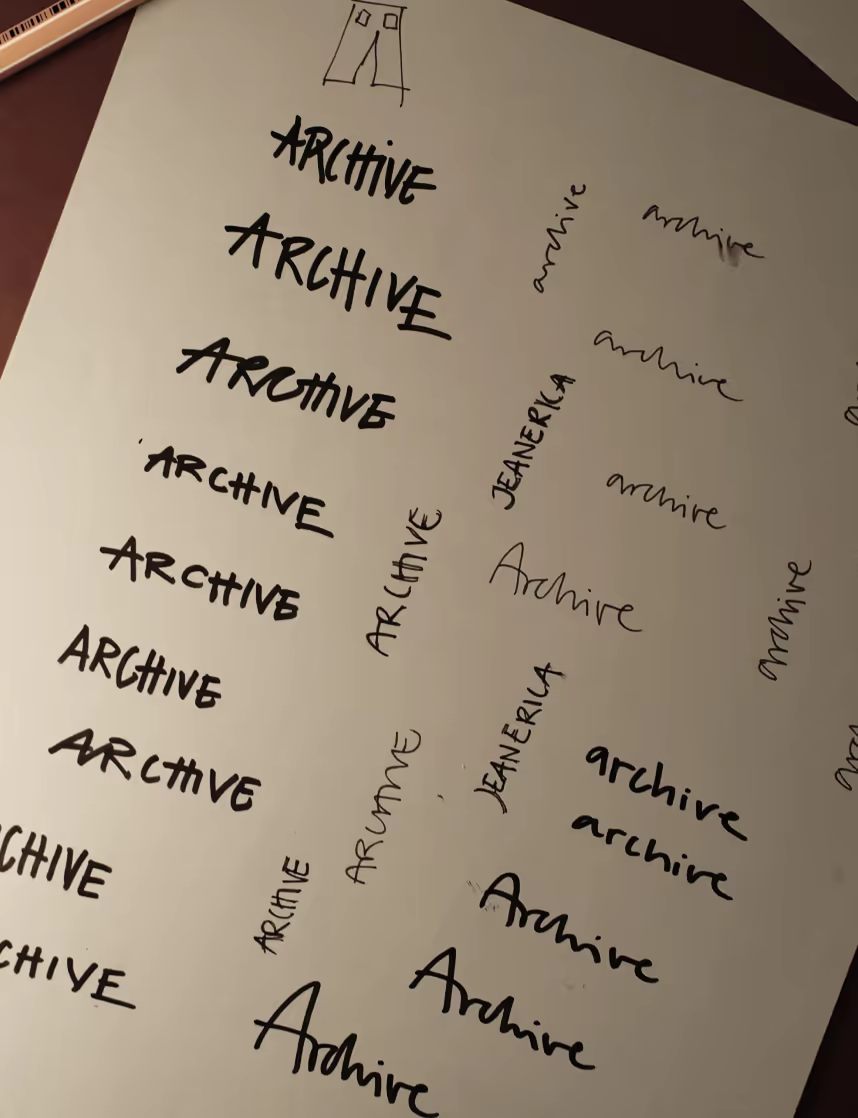 ARCHIVE
ARCHIVE
ARCHIVE
ARCHIVE
ARCHIVE
ARCHIVE
ARCHIVE
CHIVE
CHIVE
ARCHIVE
ARCHIVE
ARCHIVE
Archive
archive
archive
archive
archive
JEANERICA
Archive
JEANERICA
archive
archive
archive
Archive
Archive